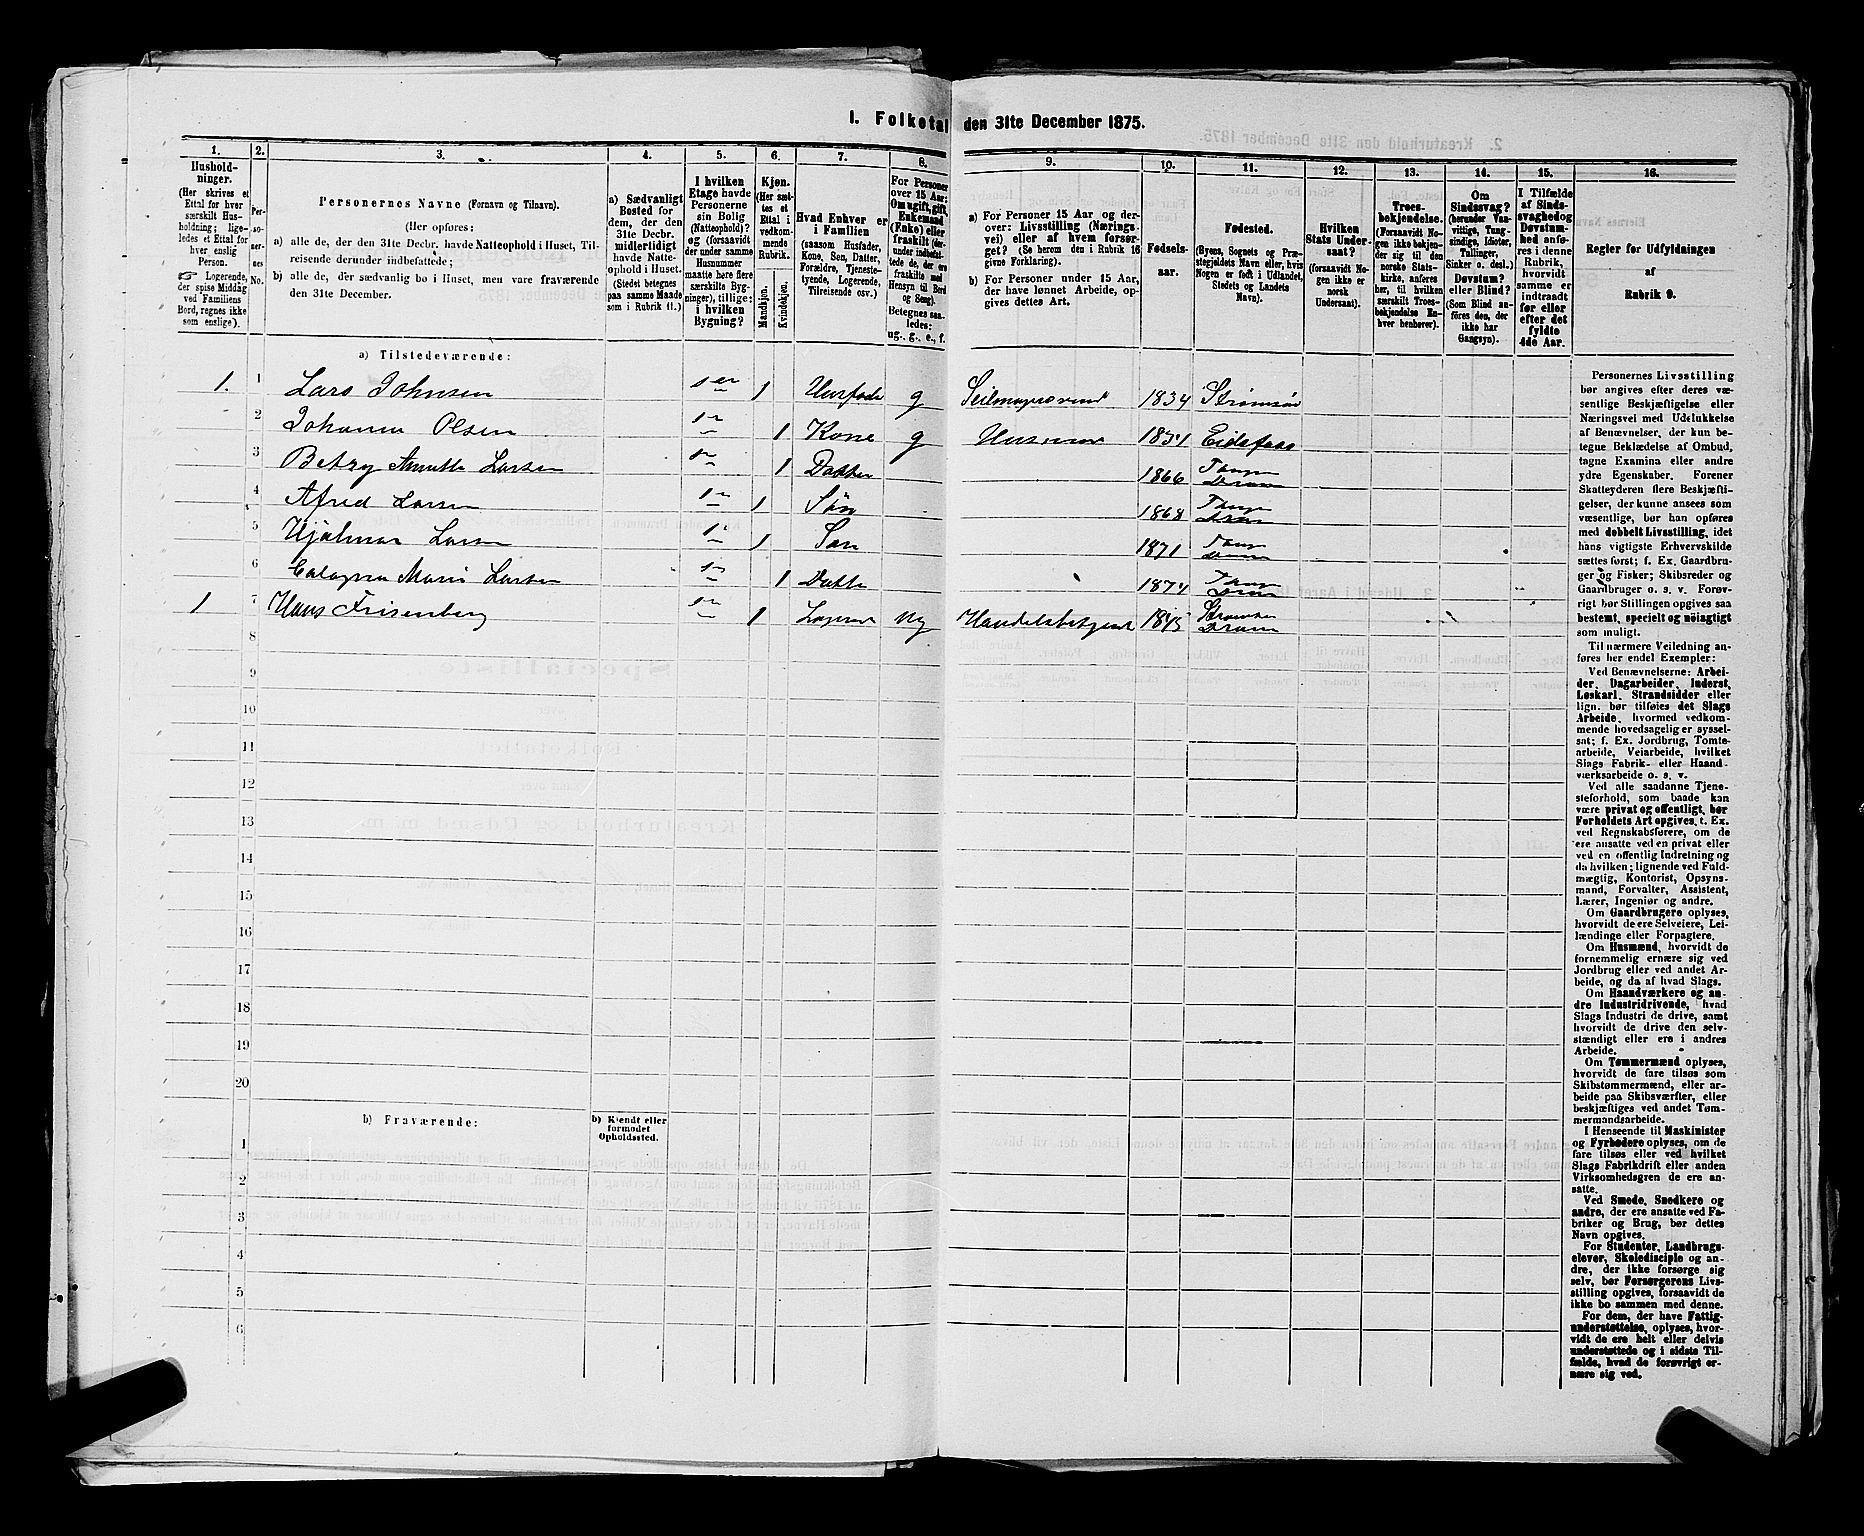 1. Folketal den 31te December 1875.
1.
Hushold-
ninger.
(Her skrives et
Ettal for hver
særskilt Hus-
holdning; lige-
ledes et Ettal for
hver enslig
Person.
☞ Logerende,
der spise Middag
ved Familiens
Bord, regnes ikke
som enslige).
2.
Per-
so-
ner-
nes
No.
3.
Personernes Navne (Fornavn og Tilnavn).
(Her opføres:
a) alle de, der den 31te Decbr. havde Natteophold i Huset, Til-
reisende derunder indbefattede;
b) alle de, der sædvanlig bo i Huset, men vare fraværende
den 31te December.
4.
a) Sædvanligt
Bosted for
dem, der den
31te Decbr.
midlertidigt
havde Natte-
ophold i Huset.
(Stedet betegnes
paa samme Maade
som i Rubrik 11.)
5.
I hvilken
Etage havde
Personerne
sin Bolig
(Natteophold)?
og (forsaavidt
der under samme
Husnummer
maatte høre flere
særskilte Byg-
ninger), tillige:
i hvilken
Bygning?
6.
Kjøn.
(Her sæt-
tes et
Ettal i
vedkom-
mende
Rubrik.
Mandkjøn.
Kvindekjøn.
7.
Hvad Enhver er
i Familien
(saasom Husfader,
Kone, Søn, Datter,
Forældre, Tjeneste-
tyende, Logerende,
Tilreisende osv.)
8.
For Personer
over 15 Aar:
Om ugift, gift,
Enkemand
(Enke) eller
fraskilt (der-
under indbefat-
tede de, der ere
fraskilte med
Hensyn til Bord
og Seng).
Betegnes saa-
ledes:
ug., g., e., f.
9.
a) For Personer 15 Aar og der-
over: Livsstilling (Nærings-
vei) eller af hvem forsør-
get? (Se herom den i Rubrik 16
givne Forklaring).
b) For Personer under 15 Aar,
der have lønnet Arbeide, op-
gives dettes Art.
10.
Fødsels-
aar.
11.
Fødested.
(Byens, Sognets og Præ-
stegjeldets Navn eller, hvis
Nogen er født i Udlandet,
Stedets og Landets
Navn).
12.
Hvilken
Stats Under-
saat?
(forsaavidt No-
gen ikke er
norsk
Undersaat).
13.
Troes-
bekjendelse.
(Forsaavidt No-
gen ikke bekjen-
der sig til den
norske Stats-
kirke, anføres
her, til hvilken
særskilt Troes-
bekjendelse En-
hver henhører).
14.
Om
Sindssvag?
(herunder Van-
vittige, Tung-
sindige, Idioter,
Tullinger,
Sinker o. desl.)
Døvstum?
eller Blind?
(Som Blind an-
føres den, der
ikke har
Gangsyn).
15.
I Tilfælde
af Sinds-
svaghed og
Døvstum-
hed anfø-
res i denne
Rubrik,
hvorvidt
samme er
indtraadt
før eller
efter det
fyldte
4de Aar.
16.
Regler for Udfyldningen
af
Rubrik 9.
a) Tilstedeværende:
1. 1 Lars Johnsen 1 Husfader g 1834 Strømsø
2 Johanna Olsen 1 Kone g Eidsfoss
3 Betzy Annette Larsen 1 Datter 1866
4 Alfred Larsen 1 Søn 1868
5 Hjalmar Larsen 1 Søn 1871
6 Marie Larsen 1 Datter 1874
1 7 Hans Frisenberg 1 ug Handelsbetjent
8
9
10
11
12
13
14
15
16
17
18
19
20
b) Fraværende:
b) Kjendt eller
formodet
Opholdssted.
1
2
3
4
5
6
Personernes Livsstilling
bør angives efter deres væ-
sentlige Beskjæftigelse eller
Næringsvei med Udelukkelse
af Benævnelser, der kun be-
tegne Beklædelse af Ombud,
tagne Examina eller andre
ydre Egenskaber. Forener
Skatteyderen flere Beskjæfti-
gelser, der kunne ansees som
væsentlige, bør han opføres
med dobbelt Livsstilling, idet
hans vigtigste Erhvervskilde
sættes først; f. Ex. Gaardbru-
ger og Fisker; Skibsreder og
Gaardbruger o. s. v. Forøv-
rigt bør Stillingen opgives saa
bestemt, specielt og nøiagtigt
som muligt.
Til nærmere Veiledning an-
føres her endel Exempler:
Ved Benævnelserne: Arbei-
der, Dagarbeider, Inderst,
Løskarl, Strandsidder eller
lign. bør tilføies det Slags
Arbeide, hvormed vedkom-
mende hovedsagelig er syssel-
sat; f. Ex. Jordbrug, Tomte-
arbeide, Veiarbeide, hvilket
Slags Fabrik- eller Haand-
værksarbeide o. s. v.
Ved alle saadanne Tjene-
steforhold, som baade kan
være privat og offentligt, bør
Forholdets Art opgives, t. Ex.
ved Regnskabsførere, om de
ere ansatte ved en privat eller
ved en offentlig Indretning og
da hvilken; lignende ved Fuld-
mægtig, Kontorist, Opsyns-
mand, Forvalter, Assistent,
Lærer, Ingeniør og andre.
Om Gaardbrugere oplyses,
hvorvidt de ere Selveiere, Lei-
lændinge eller Forpagtere.
Om Husmænd, hvorvidt de
fornemmelig ernære sig ved
Jordbrug eller ved andet Ar-
beide, og da af hvad Slags.
Om Haandværkere og an-
dre Industridrivende, hvad
Slags Industri de drive, samt
hvorvidt de drive den selv-
stændigt eller ere i andres
Arbeide.
Om Tømmermænd oplyses,
hvorvidt de fare tilsøs som
Skibstømmermænd, eller ar-
beide paa Skibsværfter, eller
beskjæftiges ved andet Tøm-
mermandsarbeide.
I Henseende til Maskinister
og Fyrbødere oplyses, om de
fare tilsøs eller ved hvilket
Slags Fabrikdrift eller anden
Virksomhedsgren de ere an-
satte.
Ved Smede, Snedkere og
andre, der ere ansatte ved Fa-
briker og Brug, bør dettes
Navn opgives.
For Studenter, Landbrugs-
elever, Skoledisciple og an-
dre, der ikke forsørge sig
selv, bør Forsørgerens Livs-
stilling opgives, forsaavidt de
ikke bo sammen med denne.
For dem, der have Fattig-
understøttelse, oplyses, hvor-
vidt de ere helt eller delvis
understøttede og i sidste Til-
fælde, hvad de forøvrigt er-
nære sig ved.